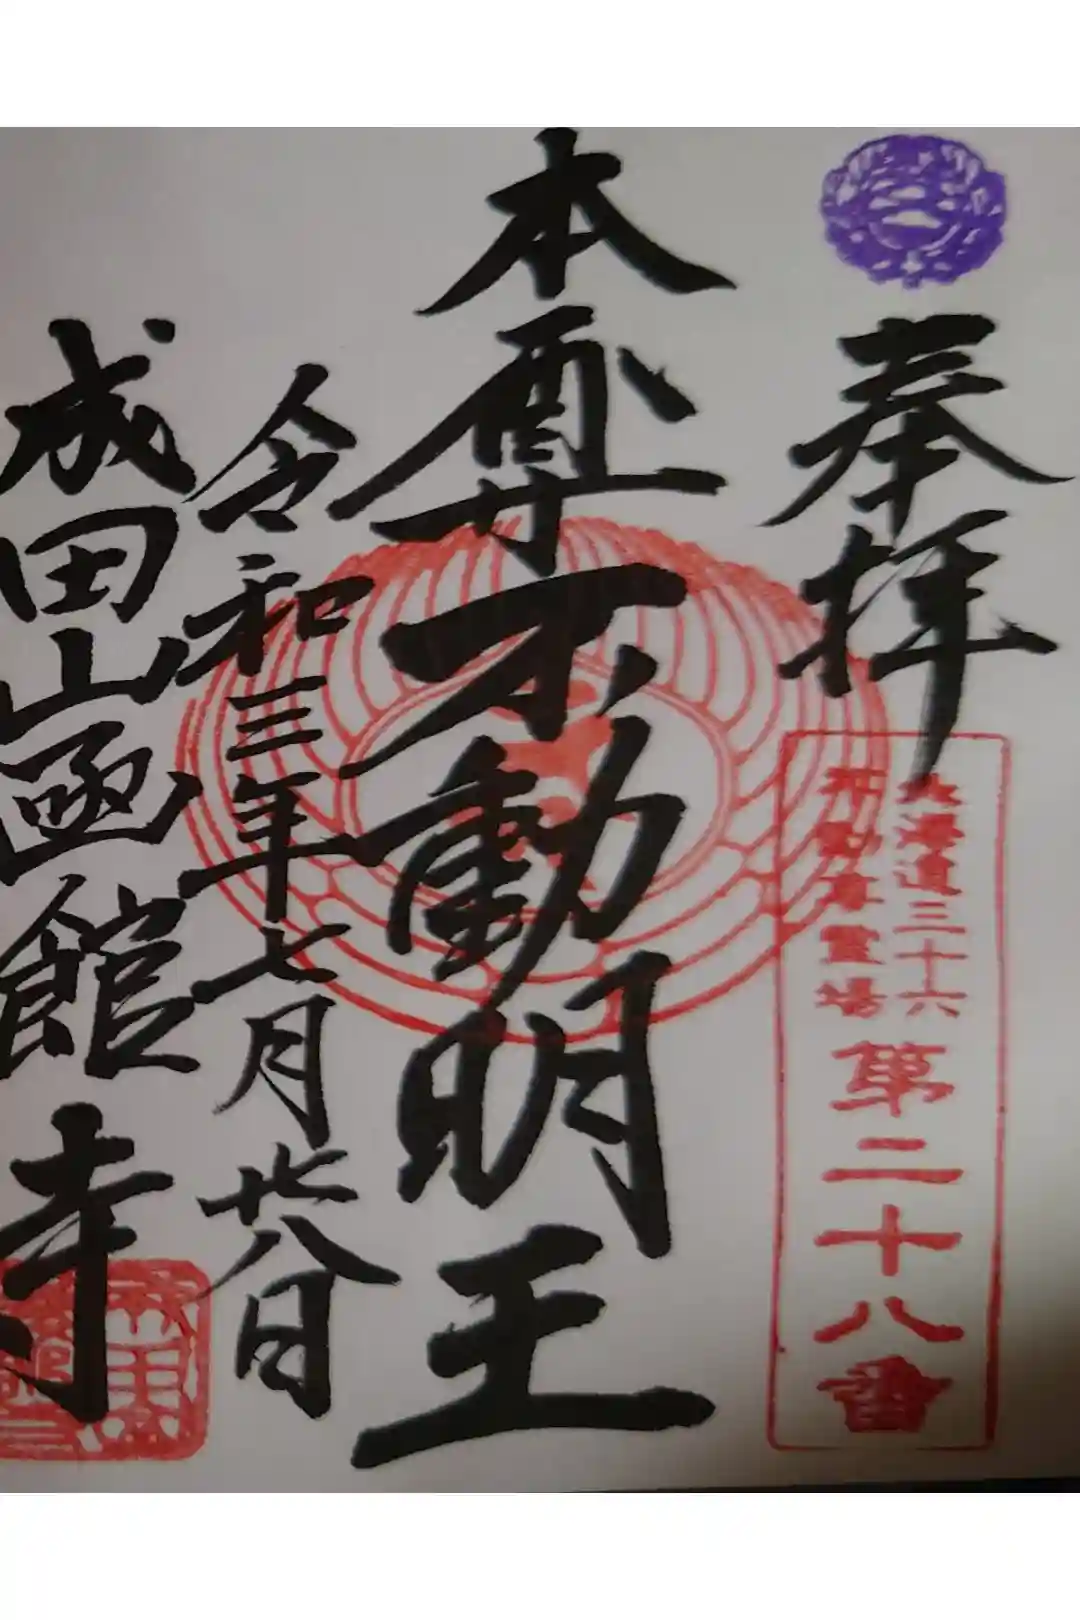 奉拝
北海道三十六
不動尊霊場
第二十八番
本尊不動明王
令和三年七月廿八日
成田山函館寺